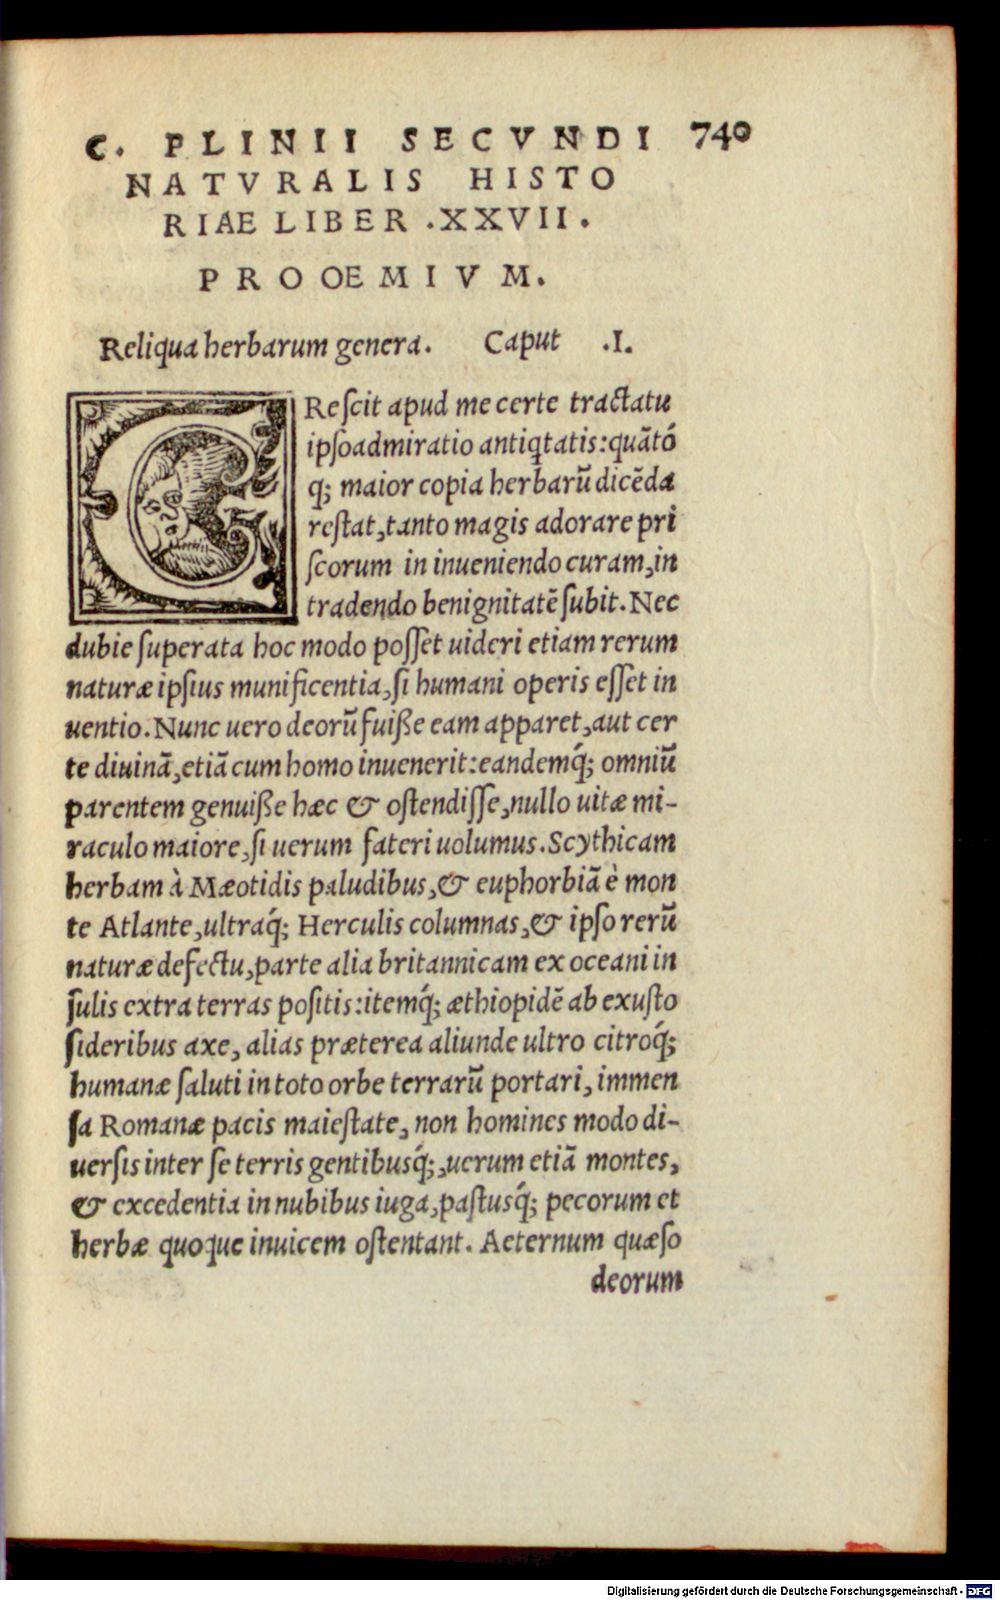 C. PLINII SECVNDI 740
NATVRALIS HISTO
RIAE LIBER .XXVII.
PROOEMIVM.
Reliqua herbarum genera. Caput .I.
CReſcit apud me certe tractatu
ipſoadmiratio antiq̃tatis:quãtó
q; maior copia herbarũ dicẽda
reſtat,tanto magis adorare pri
ſcorum in inueniendo curam,in
tradendo benignitatẽ ſubit. Nec
dubie ſuperata hoc modo poſſet uideri etiam rerum
naturæ ipſius munificentia,ſi humani operis eſſet in
uentio. Nunc uero deorũ fuiße eam apparet,aut cer
te diuinã,etiã cum homo inuenerit:eandemq́; omniũ
parentem genuiße hæc & oſtendiſſe,nullo uitæ mi-
raculo maiore,ſi uerum fateri uolumus. Scythicam
herbam à Mæotidis paludibus,& euphorbiã è mon
te Atlante,ultraq́; Herculis columnas,& ipſo rerũ
naturæ defectu,parte alia britannicam ex oceani in
ſulis extra terras poſitis:itemq́; æthiopidẽ ab exuſto
ſideribus axe, alias præterea aliunde ultro citroq́;
humanæ ſaluti in toto orbe terrarũ portari, immen
ſa Romanæ pacis maieſtate, non homines modo di-
uerſis inter ſe terris gentibusq́;,uerum etiã montes,
& excedentia in nubibus iuga,paſtusq́; pecorum et
herbæ quoque inuicem oſtentant. Aeternum quæſo
deorum
Digitalisierung gefördert durch die Deutsche Forschungsgemeinschaft - DFG